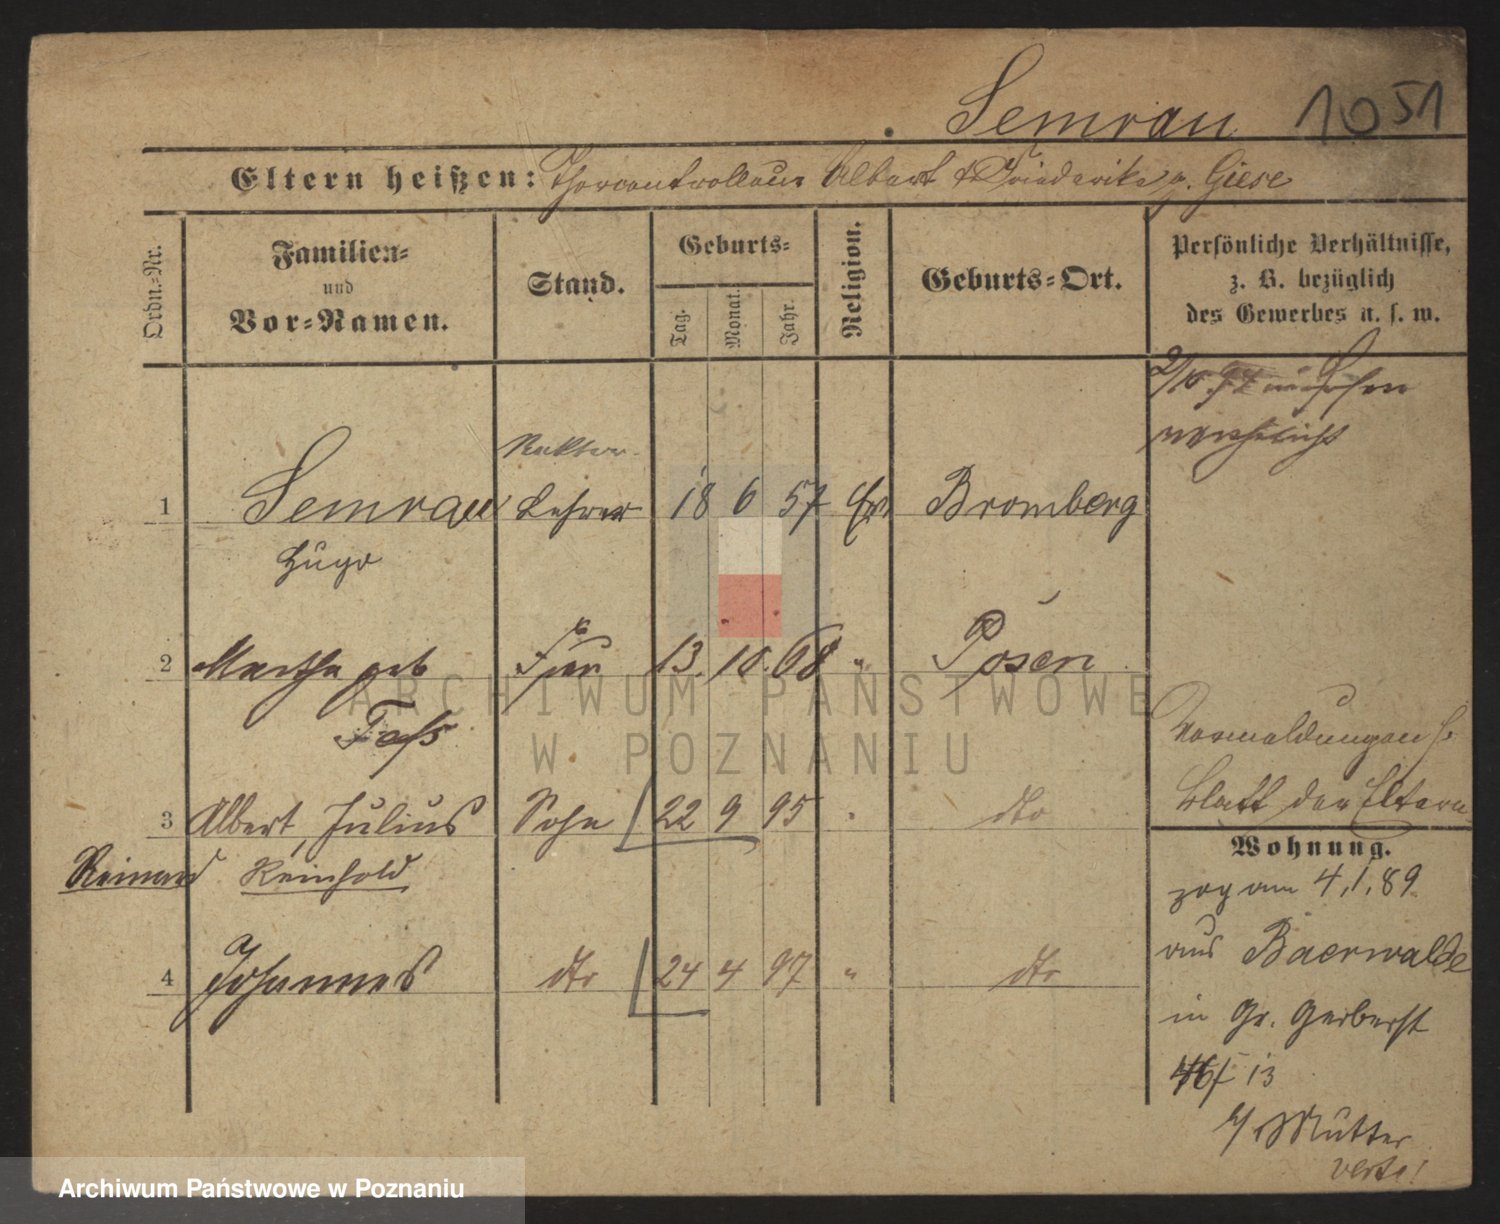 Semrau 1051
Eltern heißen: Thorcontrolleur Albert & Friederike g. Giese
Ordn.-Nr.
Familien-
und
Vor-Namen.
Stand.
Geburts-
Tag.
Monat.
Jahr.
Religion.
Geburts-Ort.
Persönliche Verhältnisse,
z. B. bezüglich
des Gewerbes u. s. w.
verehelicht
Rektor
1 Semrau Lehrer 18 6 57 Ev Bromberg
Hugo
2 Martha geb Frau 13. 10. 68 " Posen
Fass
Vormeldungen s.
Blatt der Eltern
3 Albert, Julius Sohn 22 9 95 " dto
Reinhold
4 Johannes dto 24 4 97 " dto
Wohnung.
zog am 4.1.89
aus Baerwalde
in Gr. Gerberst
13
b/ Mutter
verte!
ARCHIWUM PAŃSTWOWE
W POZNANIU
Archiwum Państwowe w Poznaniu